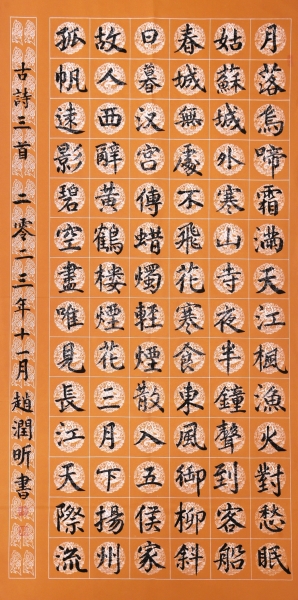 月落烏啼霜滿天江楓漁火對愁眠
姑蘇城外寒山寺夜半鐘聲到客船
春城無處不飛花寒食東風御柳斜
日暮汉宮傳蜡燭輕煙散入五侯家
故人西辭黃鶴樓煙花三月下揚州
孤帆遠影碧空盡唯見長江天際流
古詩三首 二零二三年十一月趙潤昕書